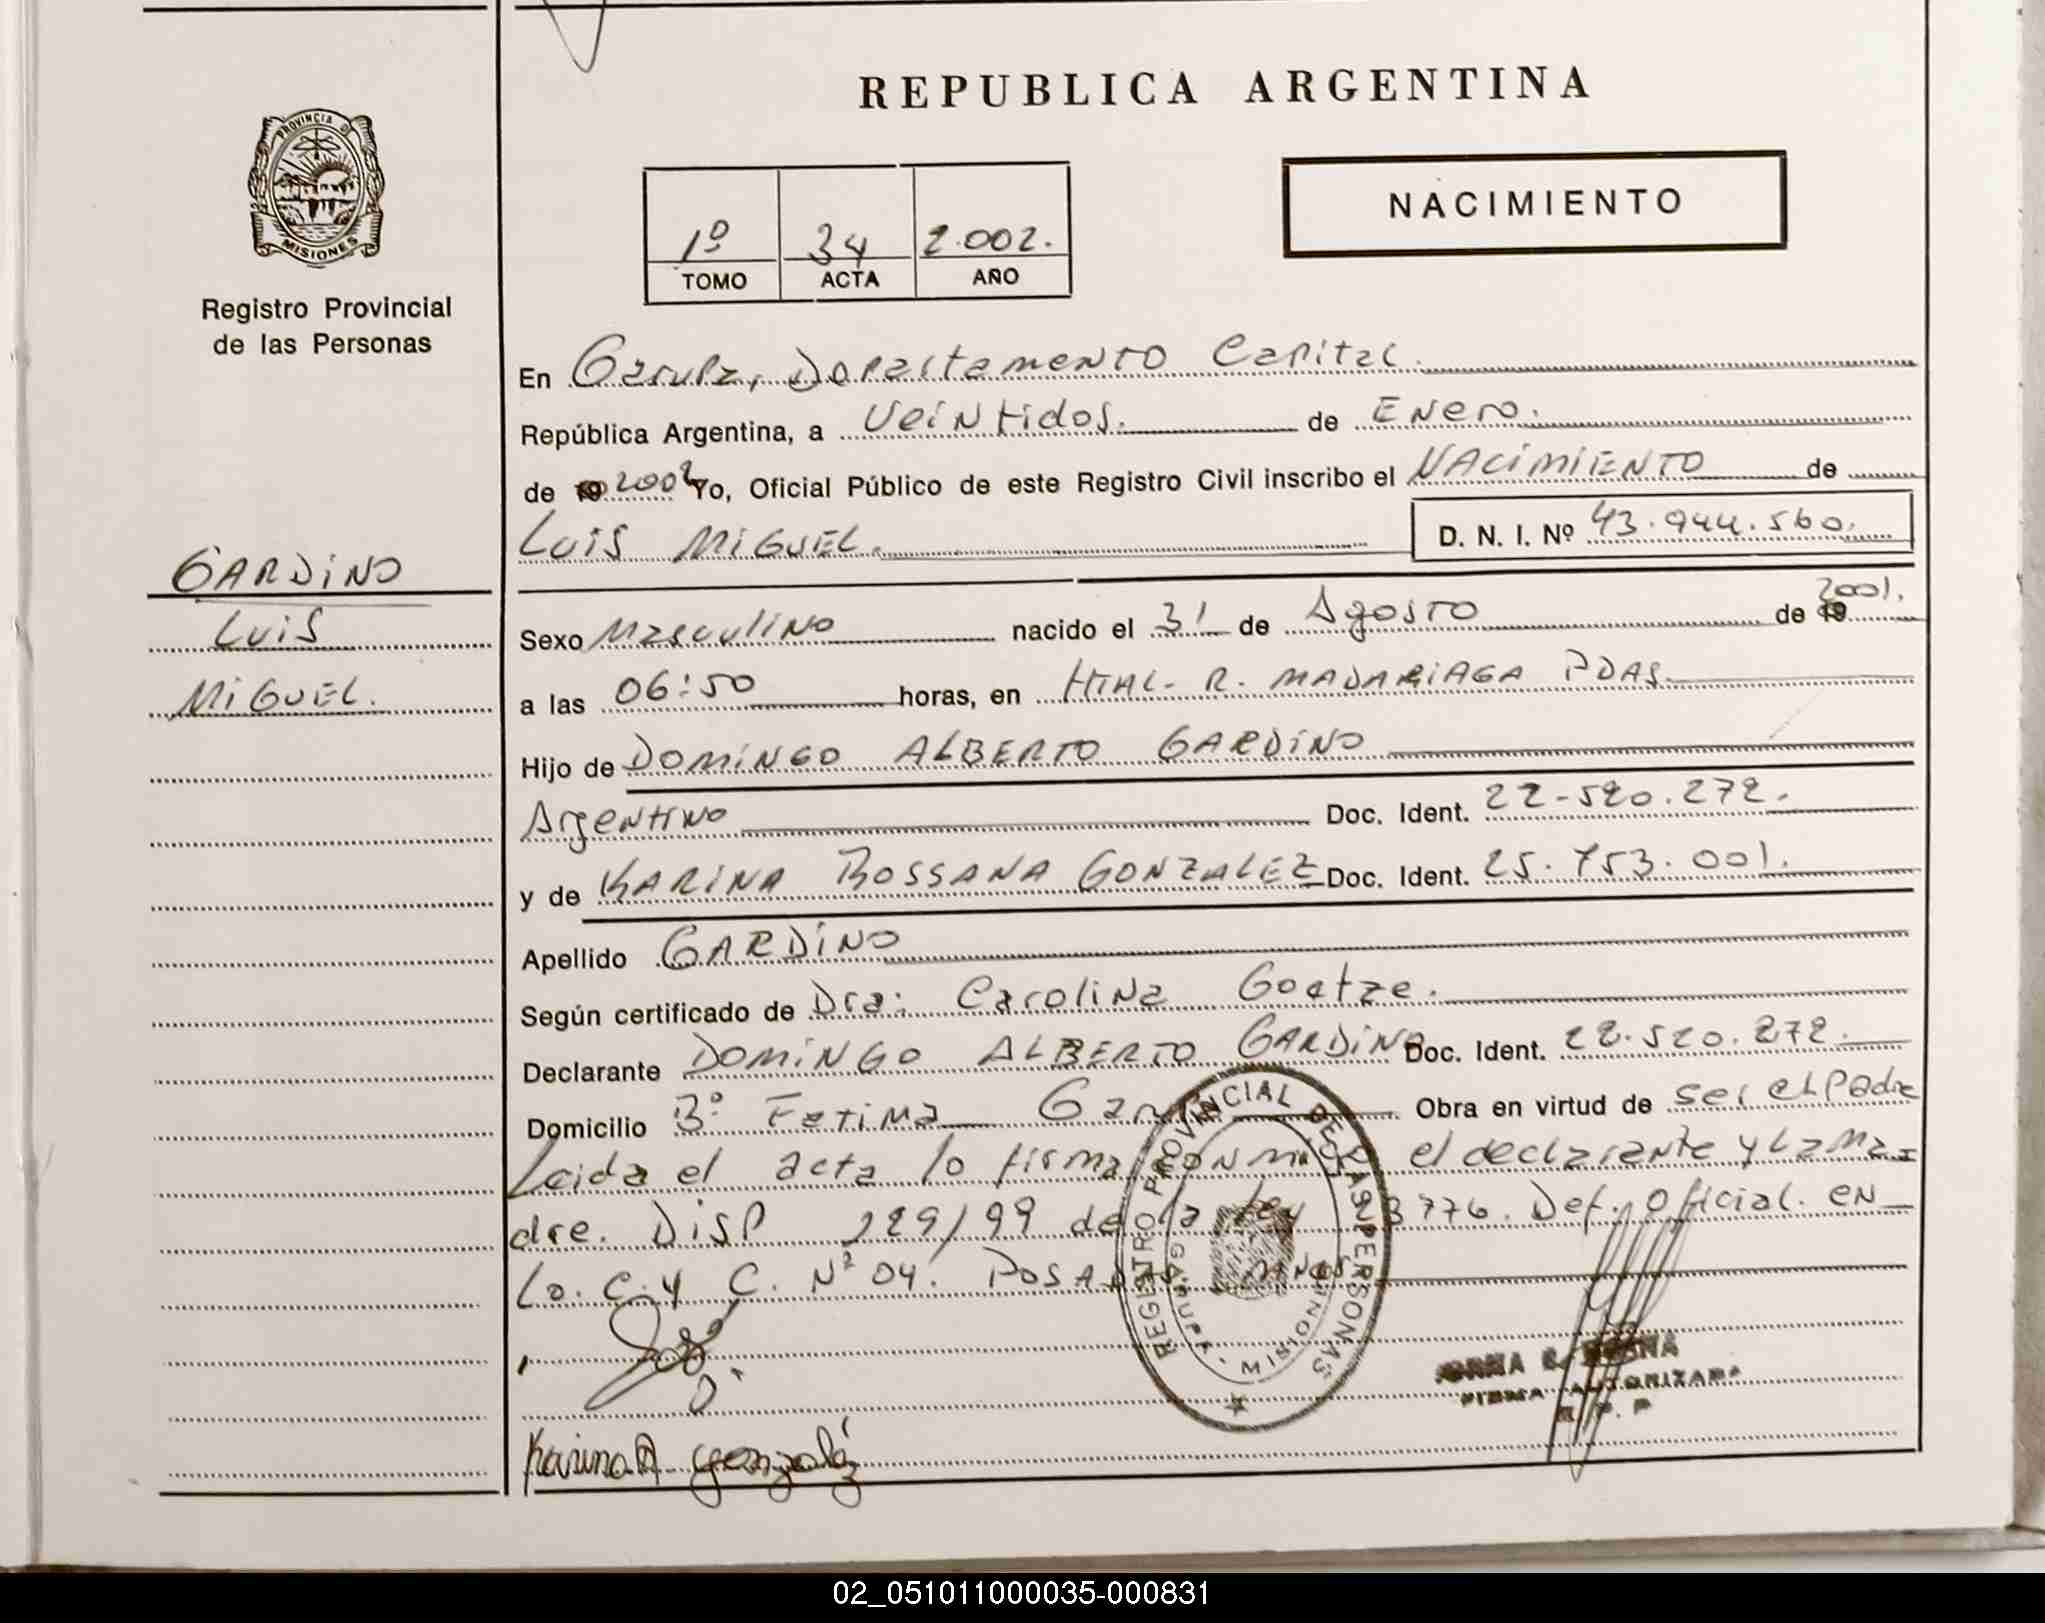 REPUBLICA ARGENTINA
PROVINCIA DE
MISIONES
Registro Provincial
de las Personas
1º 34 2.002.
TOMO ACTA AÑO
NACIMIENTO
En Garupa, Departamento Capital.
República Argentina, a Veintidos. de Enero.
de 19 2002 Yo, Oficial Público de este Registro Civil inscribo el NACIMIENTO de
LUIS MIGUEL. D. N. I. Nº 43.944.560.
GARDINO
LUIS
MIGUEL.
Sexo Masculino nacido el 31 de Agosto de 19 2001.
a las 06:50 horas, en HTAL. R. MADARIAGA PDAS.
Hijo de DOMINGO ALBERTO GARDINO
Argentino Doc. Ident. 22-520.272.
y de KARINA ROSSANA GONZALEZ Doc. Ident. 25.753.001.
Apellido GARDINO
Según certificado de Dra: Carolina Goetze.
Declarante DOMINGO ALBERTO GARDINO Doc. Ident. 22.520.272.
Domicilio Bº Fatima Obra en virtud de ser el Padre
Leida el acta lo firma conmigo el declarante y La Ma=
dre. DISP 229/99 de la Ley 23776. Def. Oficial. en
Lo. C. y C. Nº 04. POSADAS
REGISTRO PROVINCIAL DE LAS PERSONAS
GARUPA - MISIONES
FIRMA AUTORIZADA
R. P. P
Karina R gonzaléz
02_051011000035-000831